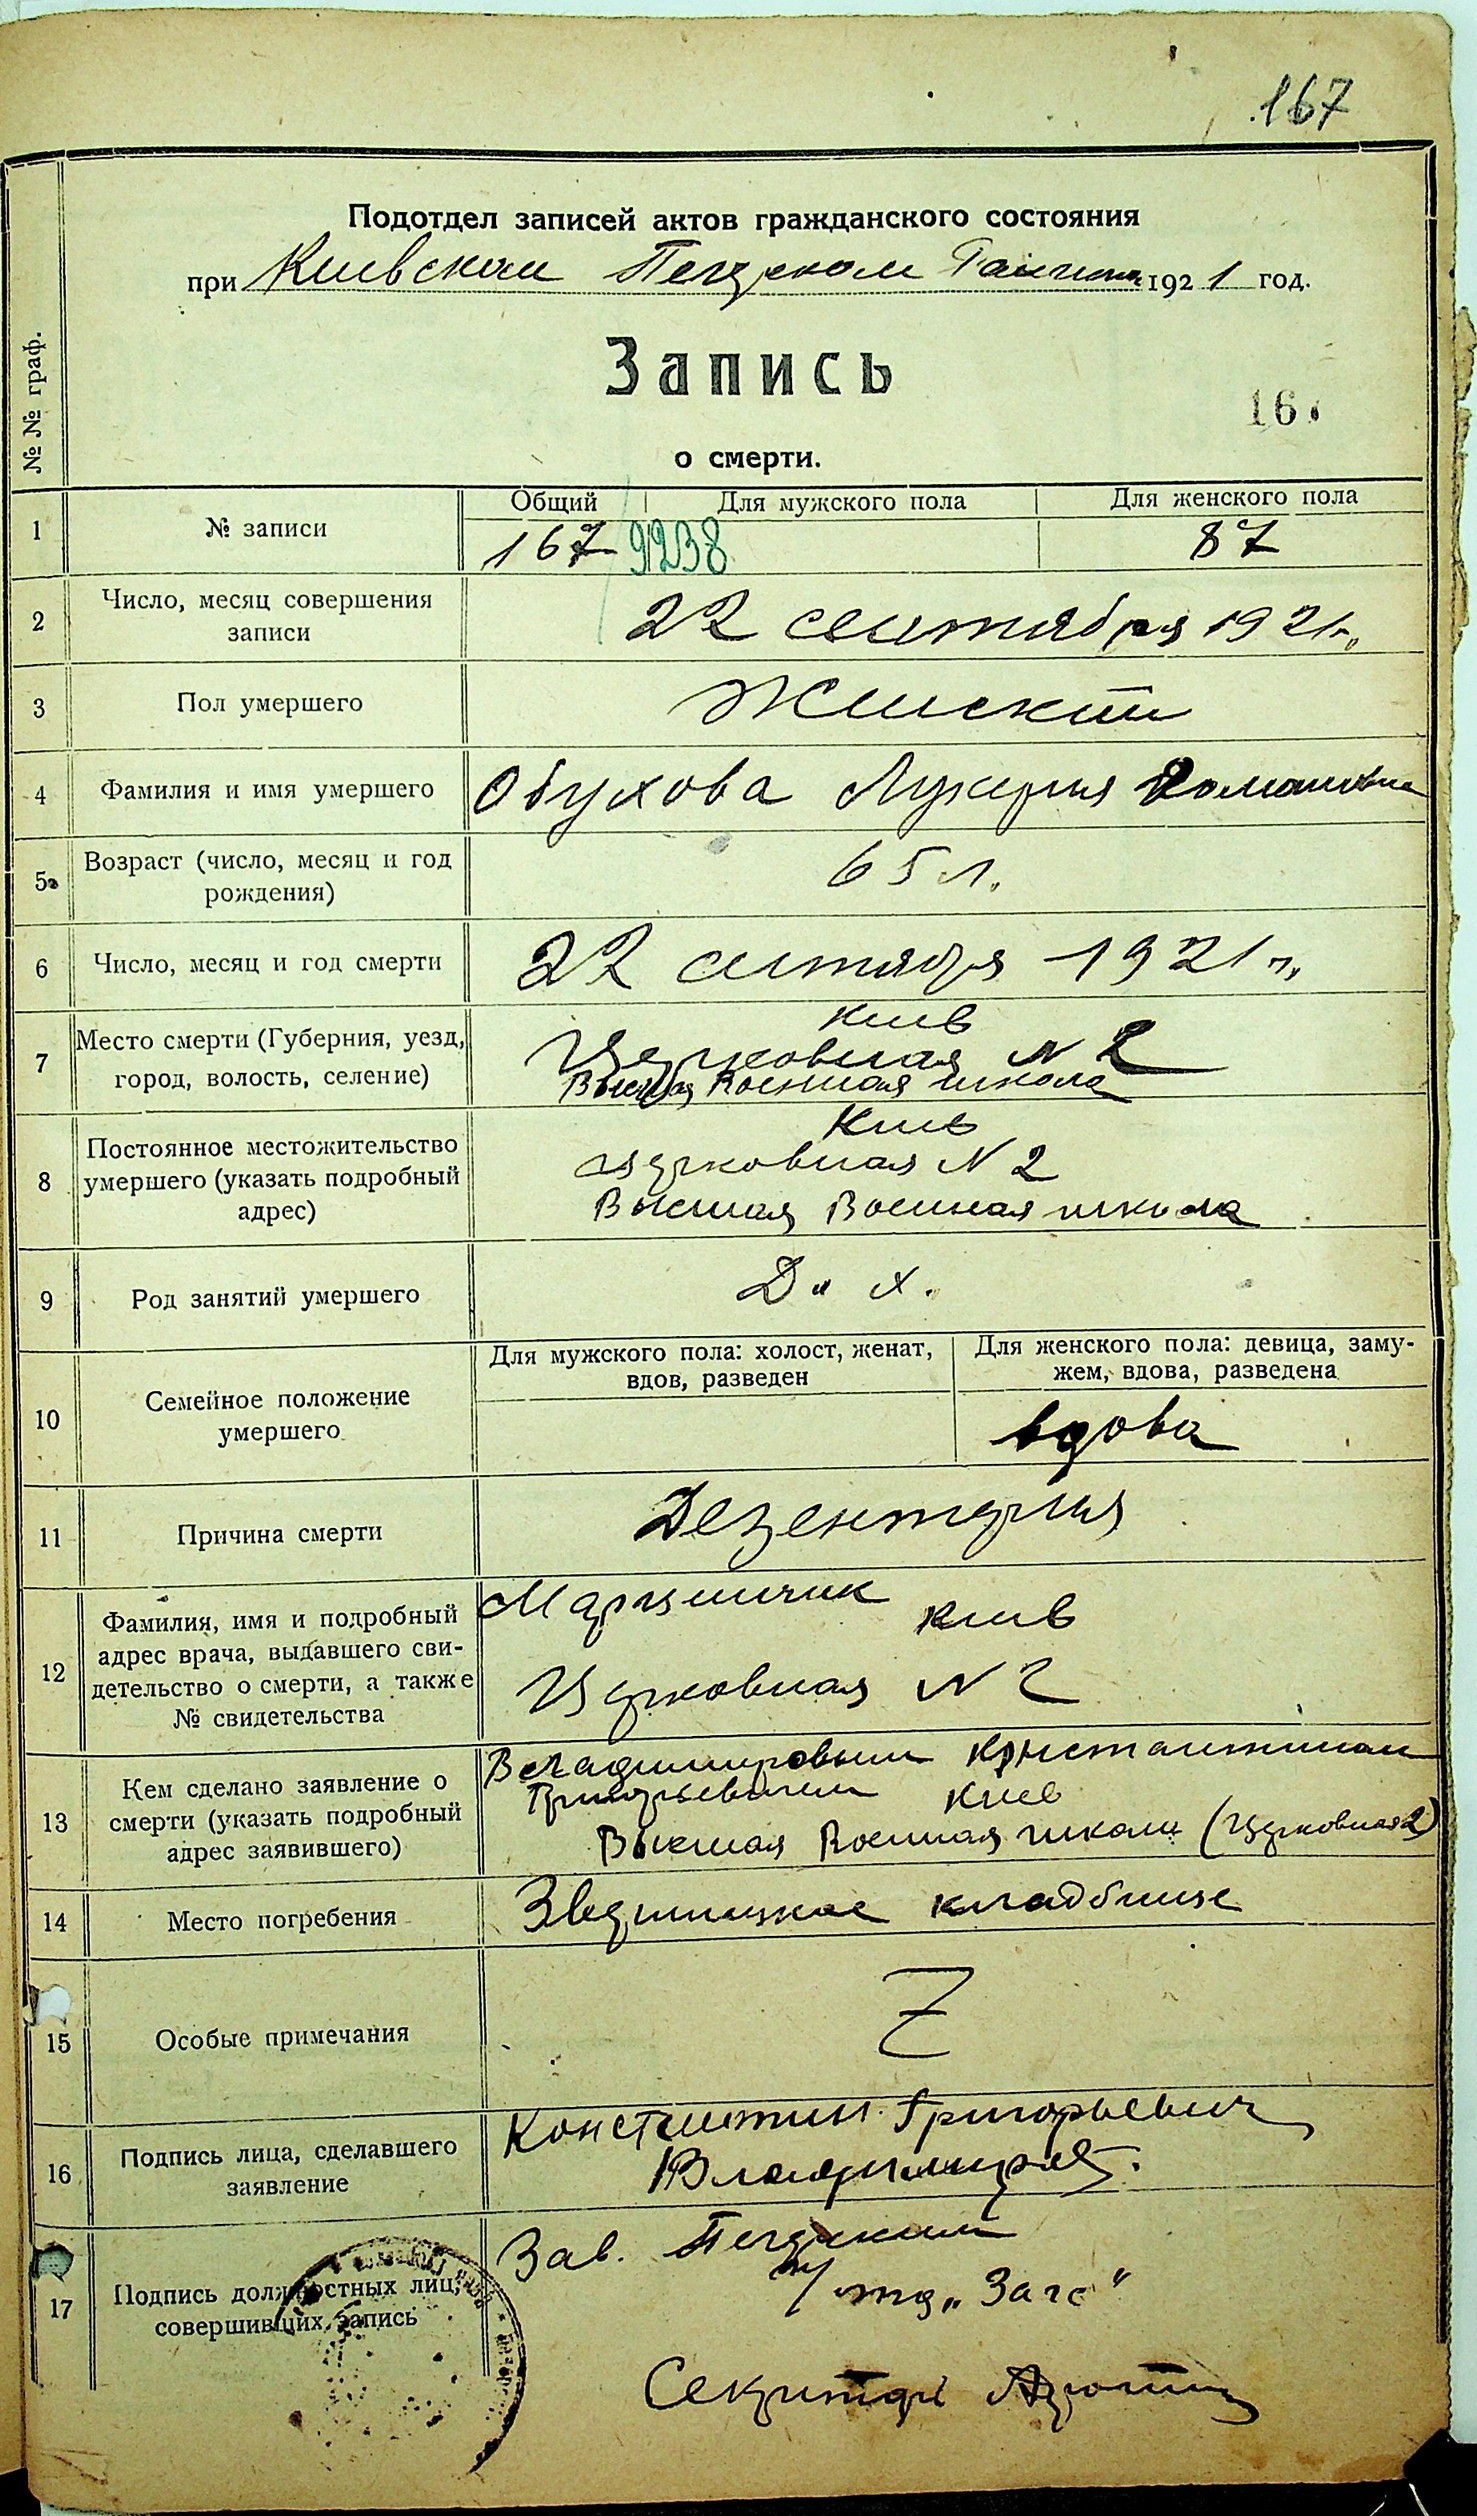 167
Подотдел записей актов гражданского состояния
при Киевском Печерском 1921 год.
Запись
167
о смерти.
№№ граф.
Общий Для мужского пола Для женского пола
1 № записи 167 9238 87
2 Число, месяц совершения записи 22 сентября 1921 г.
3 Пол умершего Женский
4 Фамилия и имя умершего Обухова Лукерья Романовна
5 Возраст (число, месяц и год
рождения) 65 л.
6 Число, месяц и год смерти 22 сентября 1921 г.
7 Место смерти (Губерния, уезд,
город, волость, селение)
Киев
Церковная N 2
Высшая Военная школа
8 Постоянное местожительство
умершего (указать подробный
адрес)
Киев
Церковная N 2
Высшая Военная школа
9 Род занятий умершего Д. х.
10 Семейное положение
умершего
Для мужского пола: холост, женат,
вдов, разведен
Для женского пола: девица, заму-
жем, вдова, разведена
вдова
11 Причина смерти Дезентерия
12 Фамилия, имя и подробный
адрес врача, выдавшего сви-
детельство о смерти, а также
№ свидетельства
Киев
Церковная N 2
13 Кем сделано заявление о
смерти (указать подробный
адрес заявившего)
Владимировым Константином
Григорьевичем Киев
Высшая Военная школа (Церковная 2)
14 Место погребения Зверинецкое кладбище
15 Особые примечания Z
16 Подпись лица, сделавшего
заявление
Константин Григорьевич
Владимиров.
17 Подпись должностных лиц,
совершивших запись
Зав. Печерским
п/отд „Загс"
Секретарь